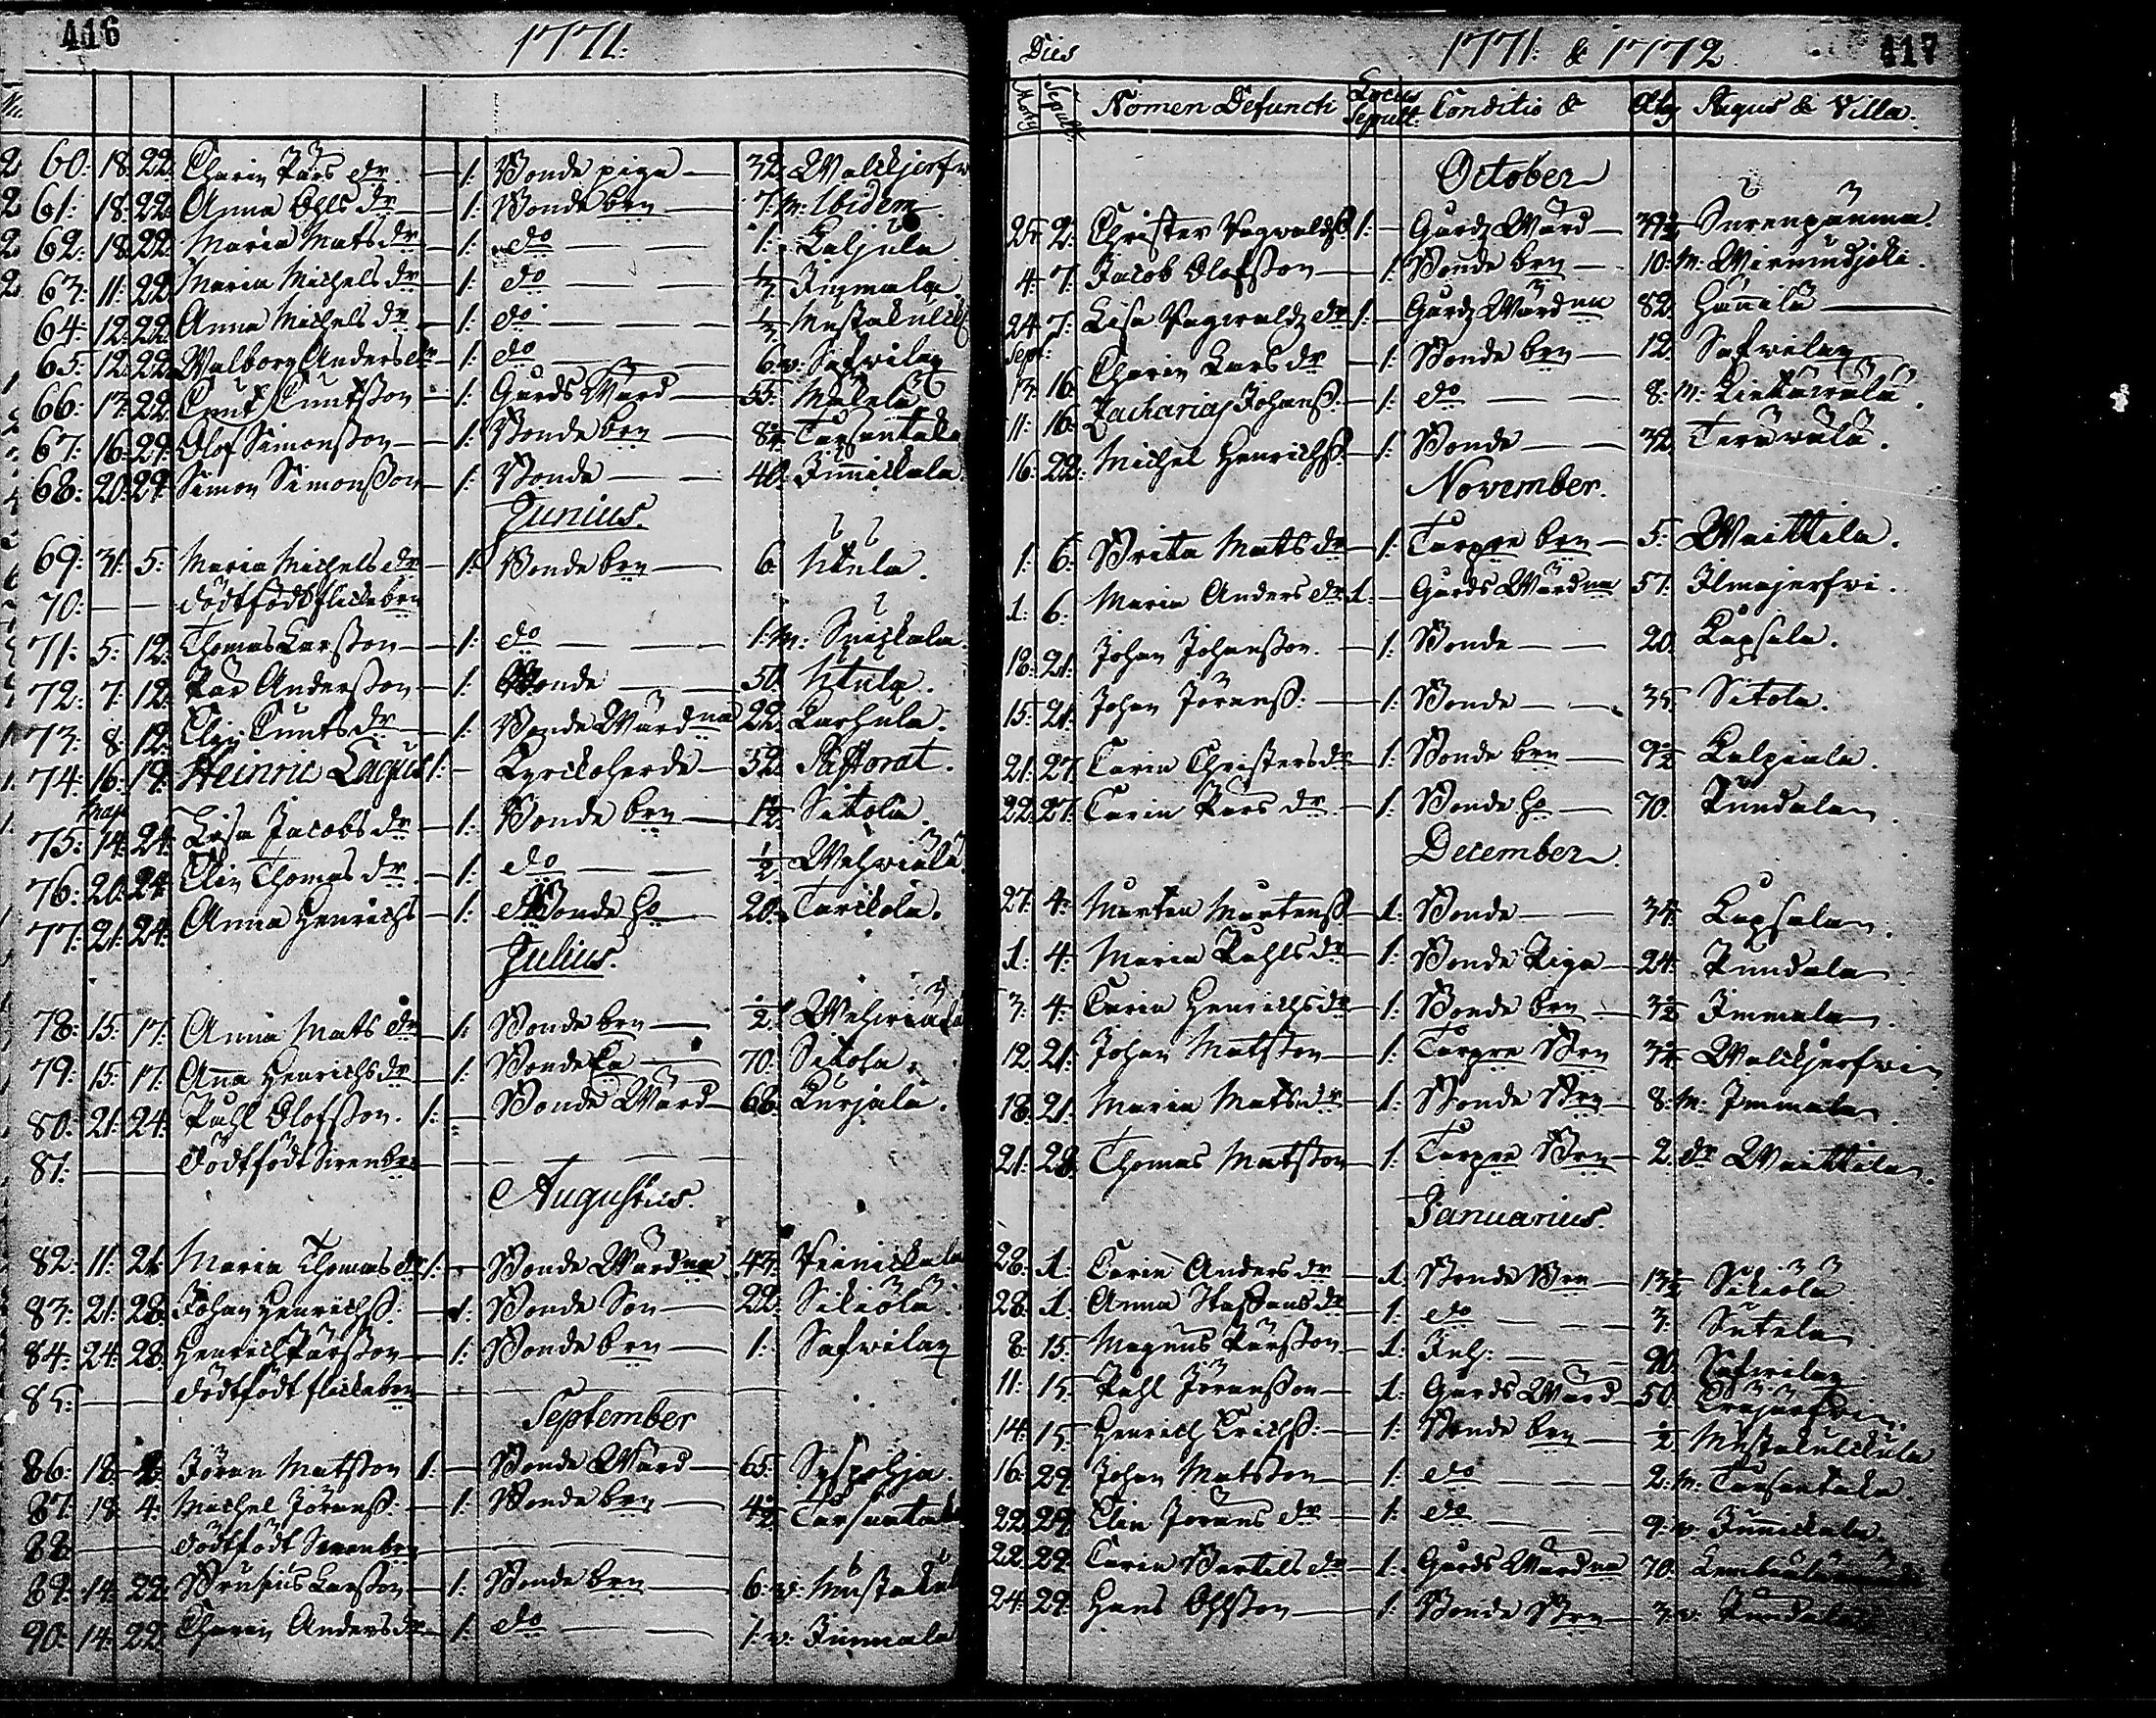 416
1771.
60: 18: 22: Charin Pärs dr. 1: Bonde piga 32. Walckjerfw
61: 18: 22: Anna Ohls dr 1: Bonde brn 7. m. Ibidem
62: 18: 22: Maria Mats dr 1: do 1: Kaljula
63: 11: 22: Maria Michels dr 1: do Immala
64: 12: 22: Anna Michels dr 1: do Mustakulck
65: 12: 22: Walborg Anders dr 1: do 6. v. Safvilax
66: 17: 22: Cnut Cnutsson 1: Gårds Wärd 55. Mäkelä
67: 16: 29: Olof Simonsson 1: Bonde brn Tarsantaka
68: 20: 29: Simon Simonsson 1: Bonde 40. Junickala
Junius.
69: 31: 5: Maria Michels dr 1: Bonde brn 6. Utula.
70: dödfödt flickebrn
71: 5: 12: Thomas Larsson 1: do 1. m: Suickala.
72: 7: 12: Pär Andersson 1: Bonde 50. Utula.
73: 8: 12: Elin Cnuts dr 1: Bonde Wärdna 22. Karhula.
74: 16: 19: Heinric Lagus 1: Kyrckoherde 52. Pastorat.
Maji
75: 14: 24: Lisa Jacobs dr 1: Bonde brn 1½. Sitola.
76: 20: 24: Elin Thomas dr 1: do ½ Wehwiälä
77: 21: 24: Anna Henrichs 1: Bonde ho 20. Tarckola.
Julius.
78: 15: 17: Anna Mats dr 1: Bonde brn ½ Wehwiälä
79: 15: 17: Anna Henrichs dr 1: Bonde Ea 70. Sitola.
80: 21: 24: Påhl Olofsson. 1: Bonde Wärd 66. Kurjala.
81: dödfödt Svenbrn
Augustus.
82: 11: 21: Maria Thomas dr 1: Bonde Wärdna 43. Pinickala
83: 21: 28: Johan Henrichss: 1: Bonde Son 22. Sikiölä.
84: 24: 28: Henrich Pärsson 1: Bonde brn 1: Safvilax
85: dödfödt flickebrn
September
86: 18: Jöran Matsson 1: Bonde Wärd 65. Syspohja.
87: 18: 4: Michel Jöranss: 1: Bonde brn 4½ Tarsantaka
88: dödfödt Svenbrn
89: 14: 22: Brusius Larsson 1: Bonde brn 6: v. Mustakul
90: 14: 22: Charin Anders dr 1: do 1: v: Immala
Dies
1771: & 1772
417
Mort. Sepult. Nomen Defuncti Locus Sepult: Conditio & Ætas Pagus & Villa.
October
25 2: Christer Sagwaldss: 1: Gårdz Wärd 39½ Surenpänmä.
4: 7: Jacob Olofsson 1: Bonde brn 10: m: Wirmudjoki.
24 7: Lisa Sagwaldz dr 1: Gårdz Wärdna 82. Hannila
Sept:
13: 16: Charin Lars dr 1: Bonde brn 12. Safvilax
11: 16: Zacharias Johanss: 1: do 8: m: Lintuwälä.
16: 22: Michel Henrichss: 1: Bonde 32. Terwälä.
November.
1: 6: Brita Mats dr 1: Torpre brn 5: Waittila.
1: 6: Maria Anders dr 1: Gårds Wärdna 57: Ilmajerfwi.
18: 21: Johan Johansson. 1: Bonde 20. Lapsala.
15: 21: Johan Jöranss: 1: Bonde 35. Sitola.
21: 27 Carin Christers dr 1: Bonde brn 9½ Kalpiala.
22: 27: Carin Pärs dr 1: Bonde ho 70. Pundala
December
27: 4: Mårten Mårtenss 1: Bonde 34. Lapsala.
1: 4: Maria Påhls dr 1: Bonde Piga 24: Pundala
3: 4: Carin Henrichs dr 1: Bonde brn 3½ Immala
12: 21: Johan Matsson 1: Torpre Brn Walckjerfwi
18: 21: Maria Mats dr 1: Bonde Brn 8: m: Immala
21: 28: Thomas Matsson 1: Torpre Brn 2. dr Waittila
Januarius.
28: 1: Carin Anders dr 1: Bonde Brn 13½ Sikiölä
28: 1: Anna Staffans dr 1: do 3: Sutela
8: 15: Magnus Pärsson 1: Inh: 90. Safvilax
11: 15: Påhl Jöransson 1: Gårds Wärd 50.
14: 15: Henrich Erichss: 1: Bonde brn ½ Mustakulckula
16: 29: Johan Matsson 1: do 2: m: Tarsantaka.
22: 29: Elin Jörans dr 1: do 9: v. Junickala
22: 29: Carin Bertils dr 1: Gårds Wärdna 70:
24: 29: Hans Ohlsson 1: Bonde Brn 3: v: Pundala